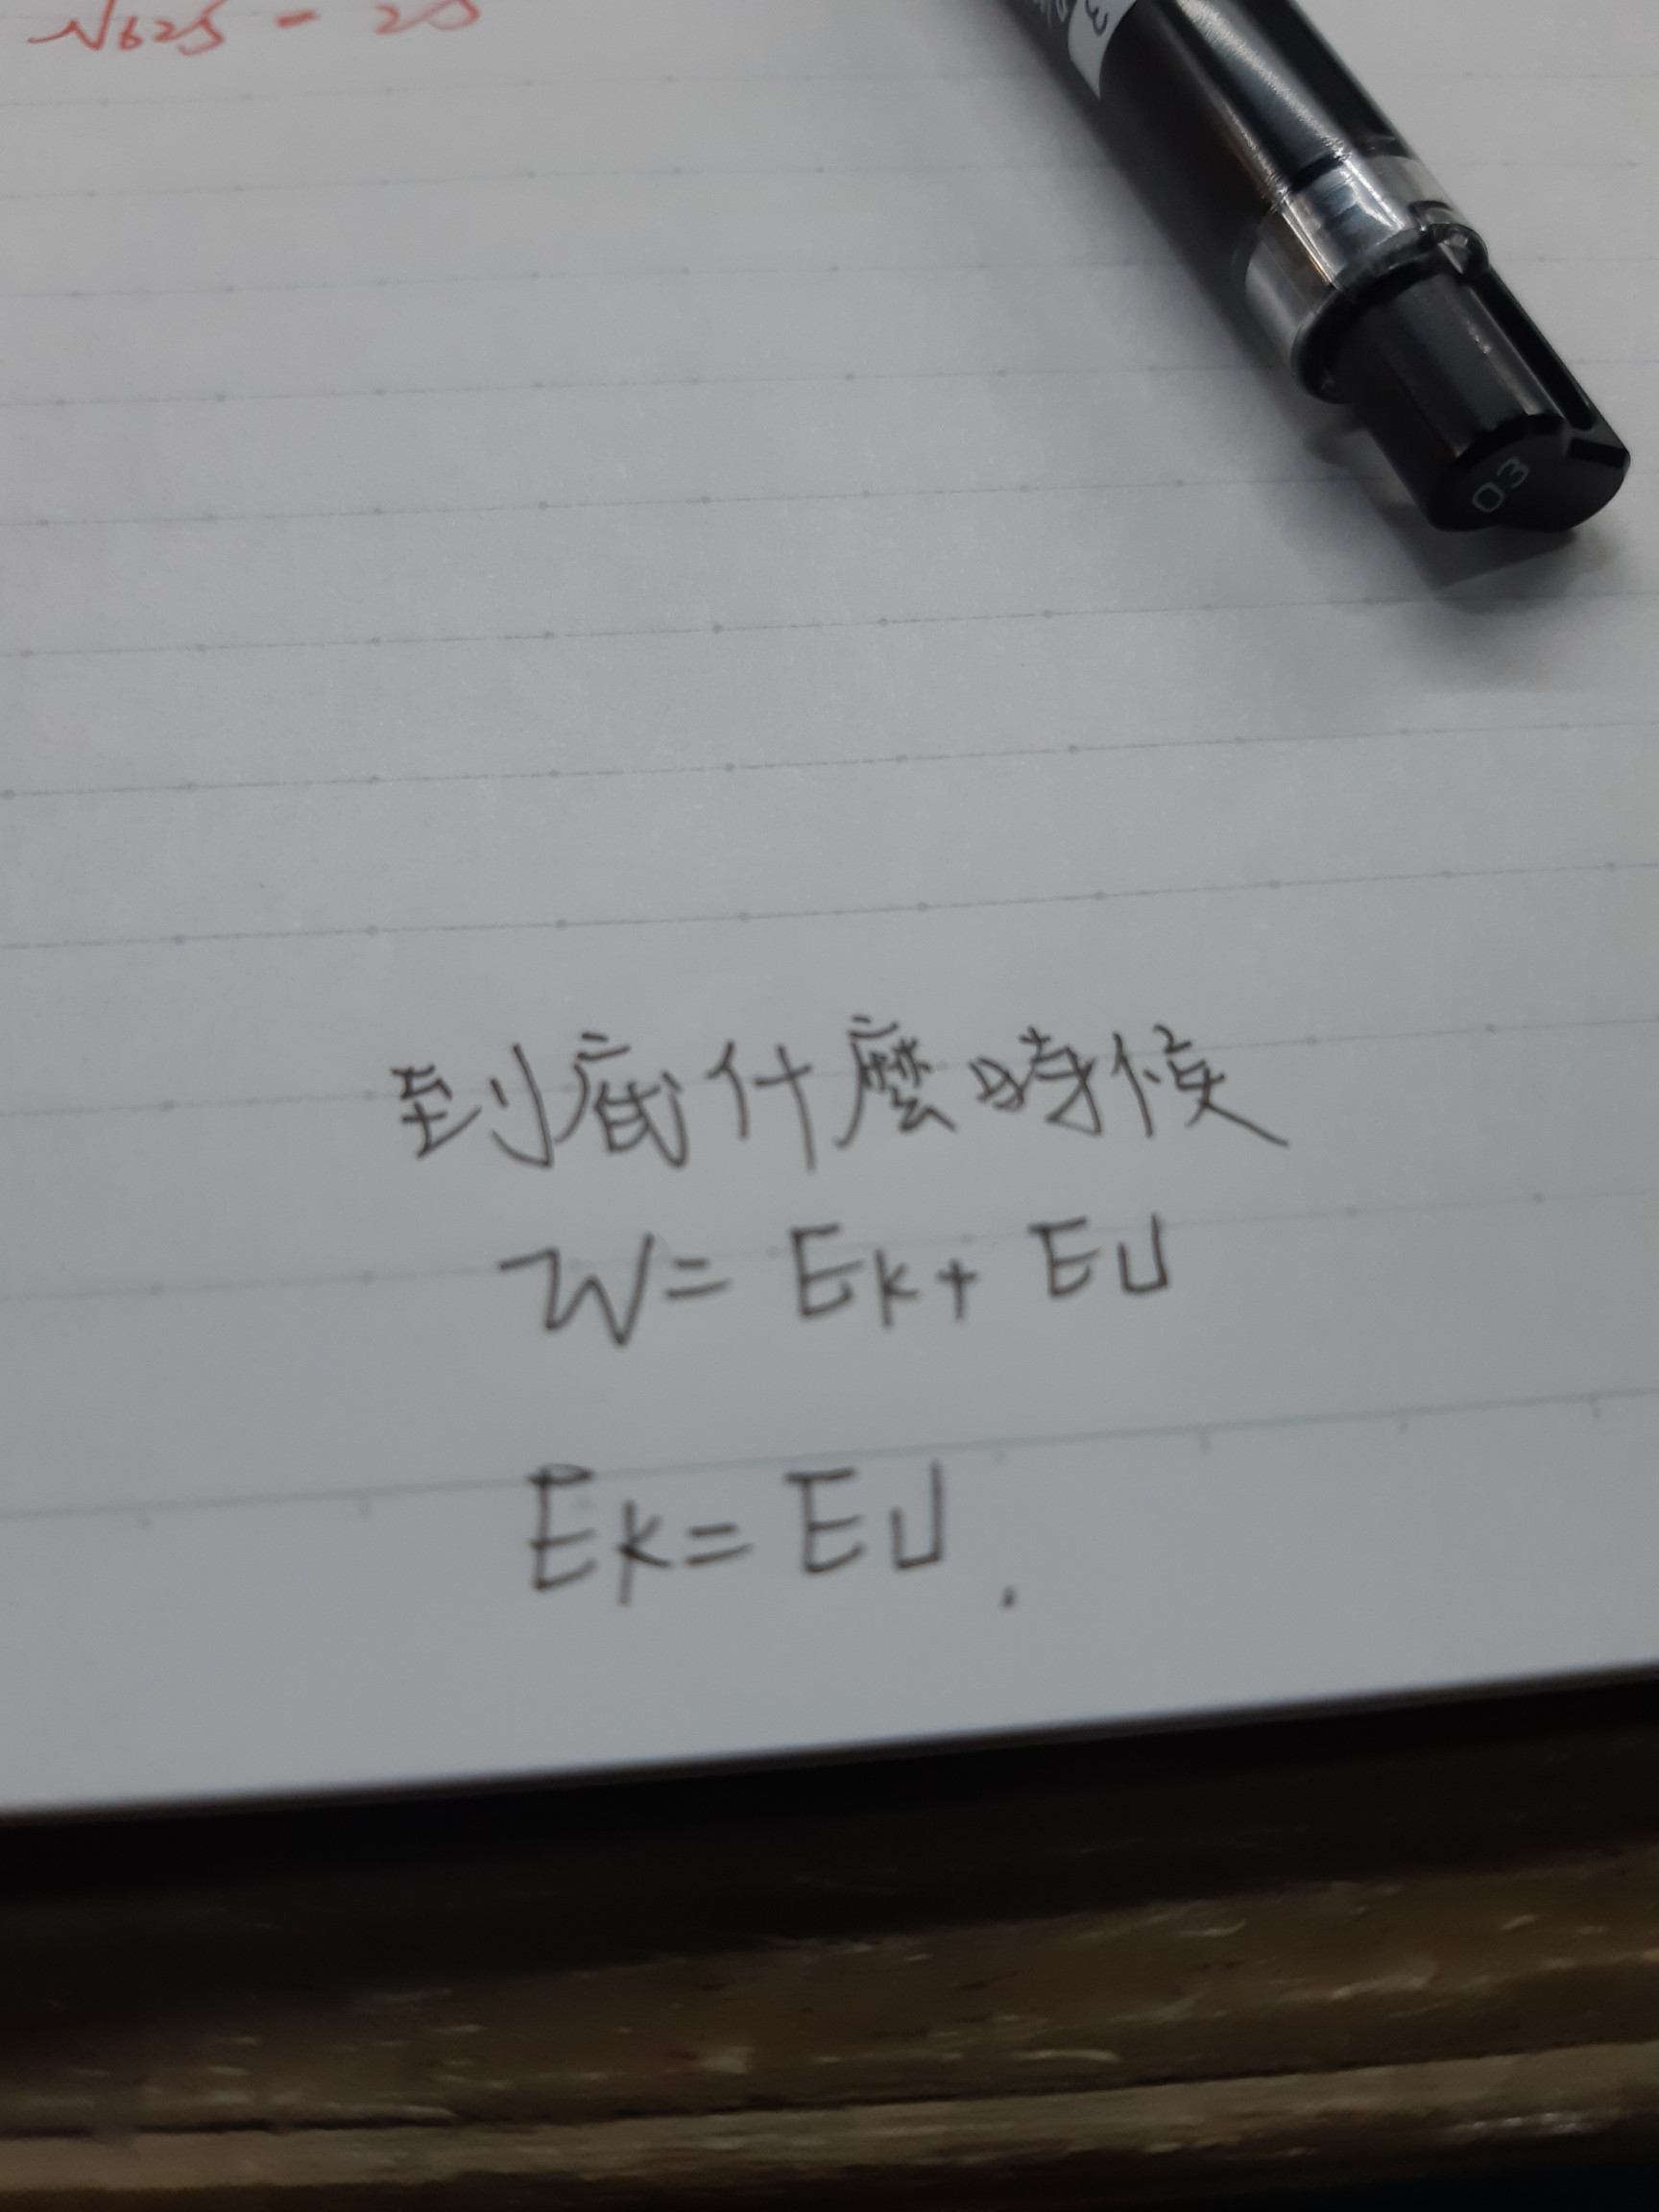 √625 - 25
到底什麼時候
W = Ek + EU
Ek = EU.
03